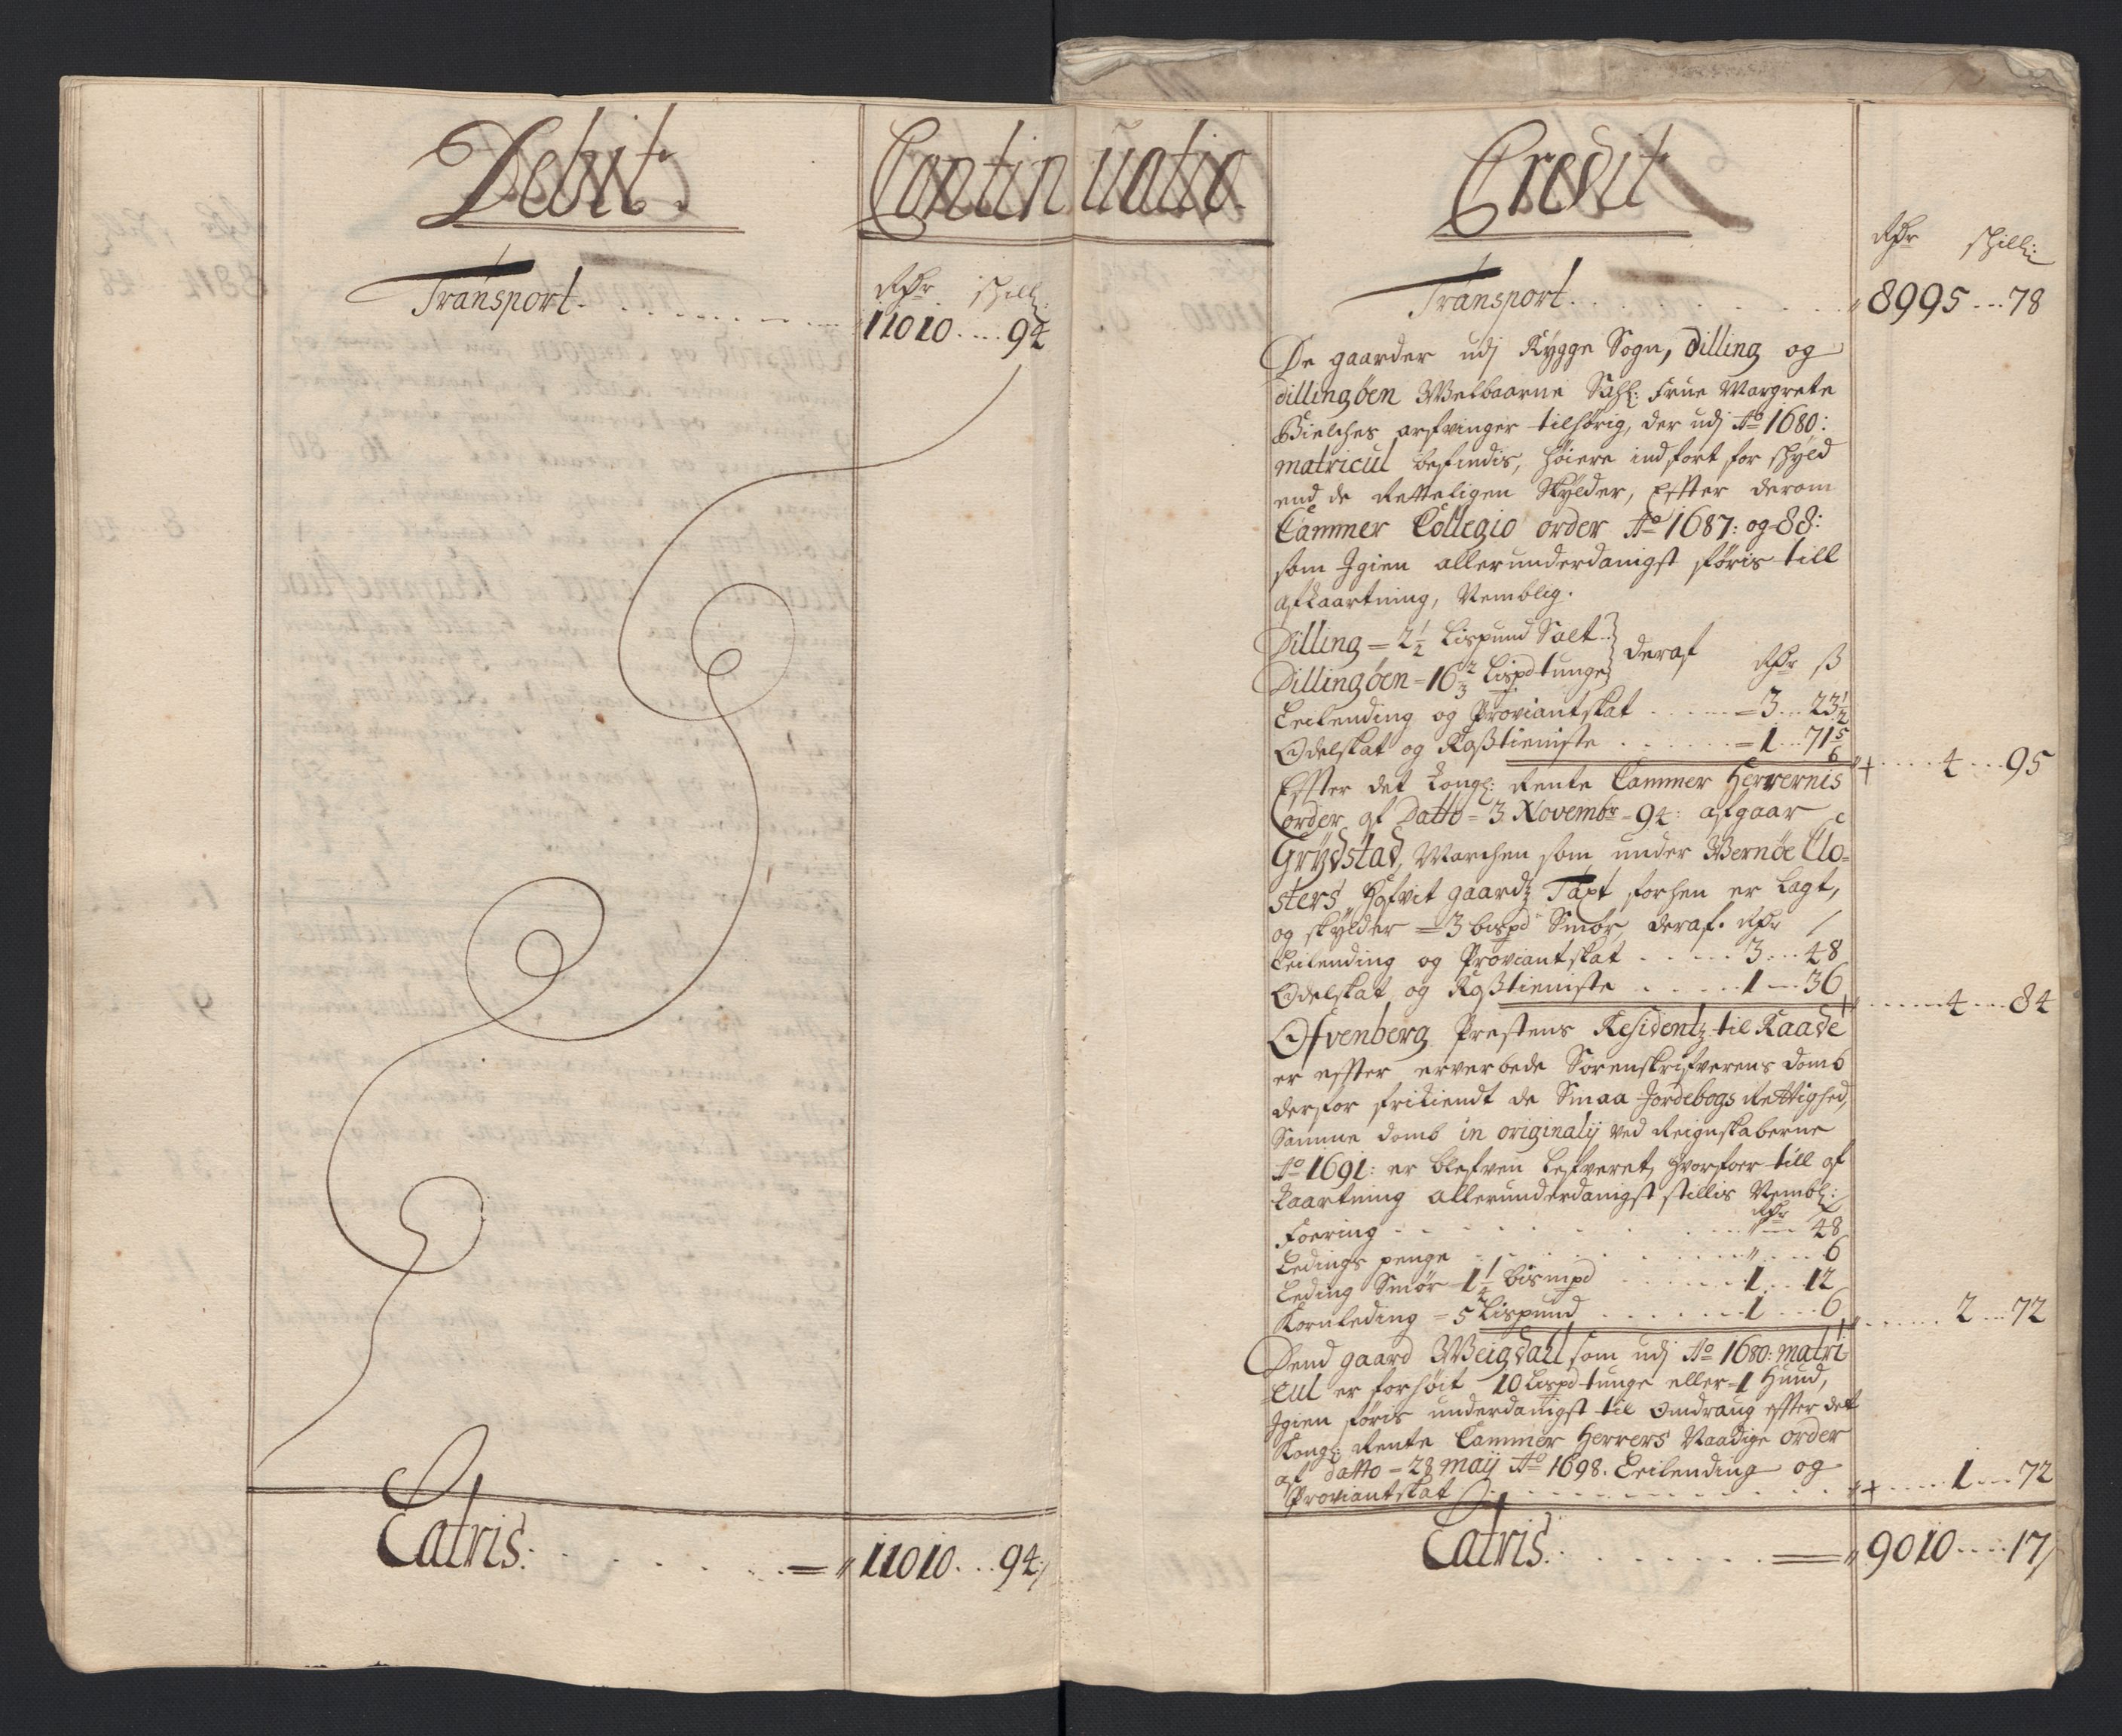 Debit.
Continuatio.
Transport.
Rdr schill:
11010 94
Latris. 11010 94
Credit
Rdr schill:
Transport. 8995 78
De gaarder udj Rygge Sogn, Dilling og
Dillingøen Welbaarne Sahl: Frue Margrete
Bielches arfvinger tilhørig, der udj Ao 1680:
matricul befindis, høiere indført for schyld
end de Retteligen skylder, Effter derom
Cammer Collegio order Ao 1687: og 88:
som Igien allerunderdanigst føris till
afkaartning, Nemblig.
Dilling = 2 1/2 Lispund Salt
Dillingøen = 16 2/3 Lispd tunge deraf Rdr ß
Leilending og Proviantskat = 3 23 1/2
Odelskat og Roßtieniste = 1 71 5/6
4 95
Effter det Kongl: Rente Cammer Herrernis
order af Datto = 3 Novembr = 94: afgaar
Grydstad, Marchen som under Wernøe Clo=
sters Hofvit gaardz Taxt forhen er Lagt,
og skylder = 3 bispd Smør, deraf. Rdr
Leilending og Proviantskat 3 48
Odelskat og Roßtieniste 1 36
4 84
Ofvenberg Prestens Residentz til Raade
er effter erverbede Sorenskrifverens domb
derfor frikiendt de Smaa Jordebogs Rettighed,
Samme domb in originalij ved Reignskaberne
Ao 1691: er blefven Lefveret, hvorfoer till af
kaartning allerunderdanigst stillis Nembl:
Rdr
Foering " 48
Ledings penge " 6
Leding Smør = 1 1/4 bismpd 1 12
Kornleding = 5 Lispund 1 6
2 72
Dend gaard Weigdall som udj Ao 1680: matri
=cul er forhøit 10 Lispd tunge eller = 1 Hund,
Igien føris underdanigst til Omdraug effter det
Kongl: Rente Cammer Herrers Naadige order
af datto = 28 Maij Ao 1698. Leilending og
Proviantskat 1 72
Latris. 9010 17